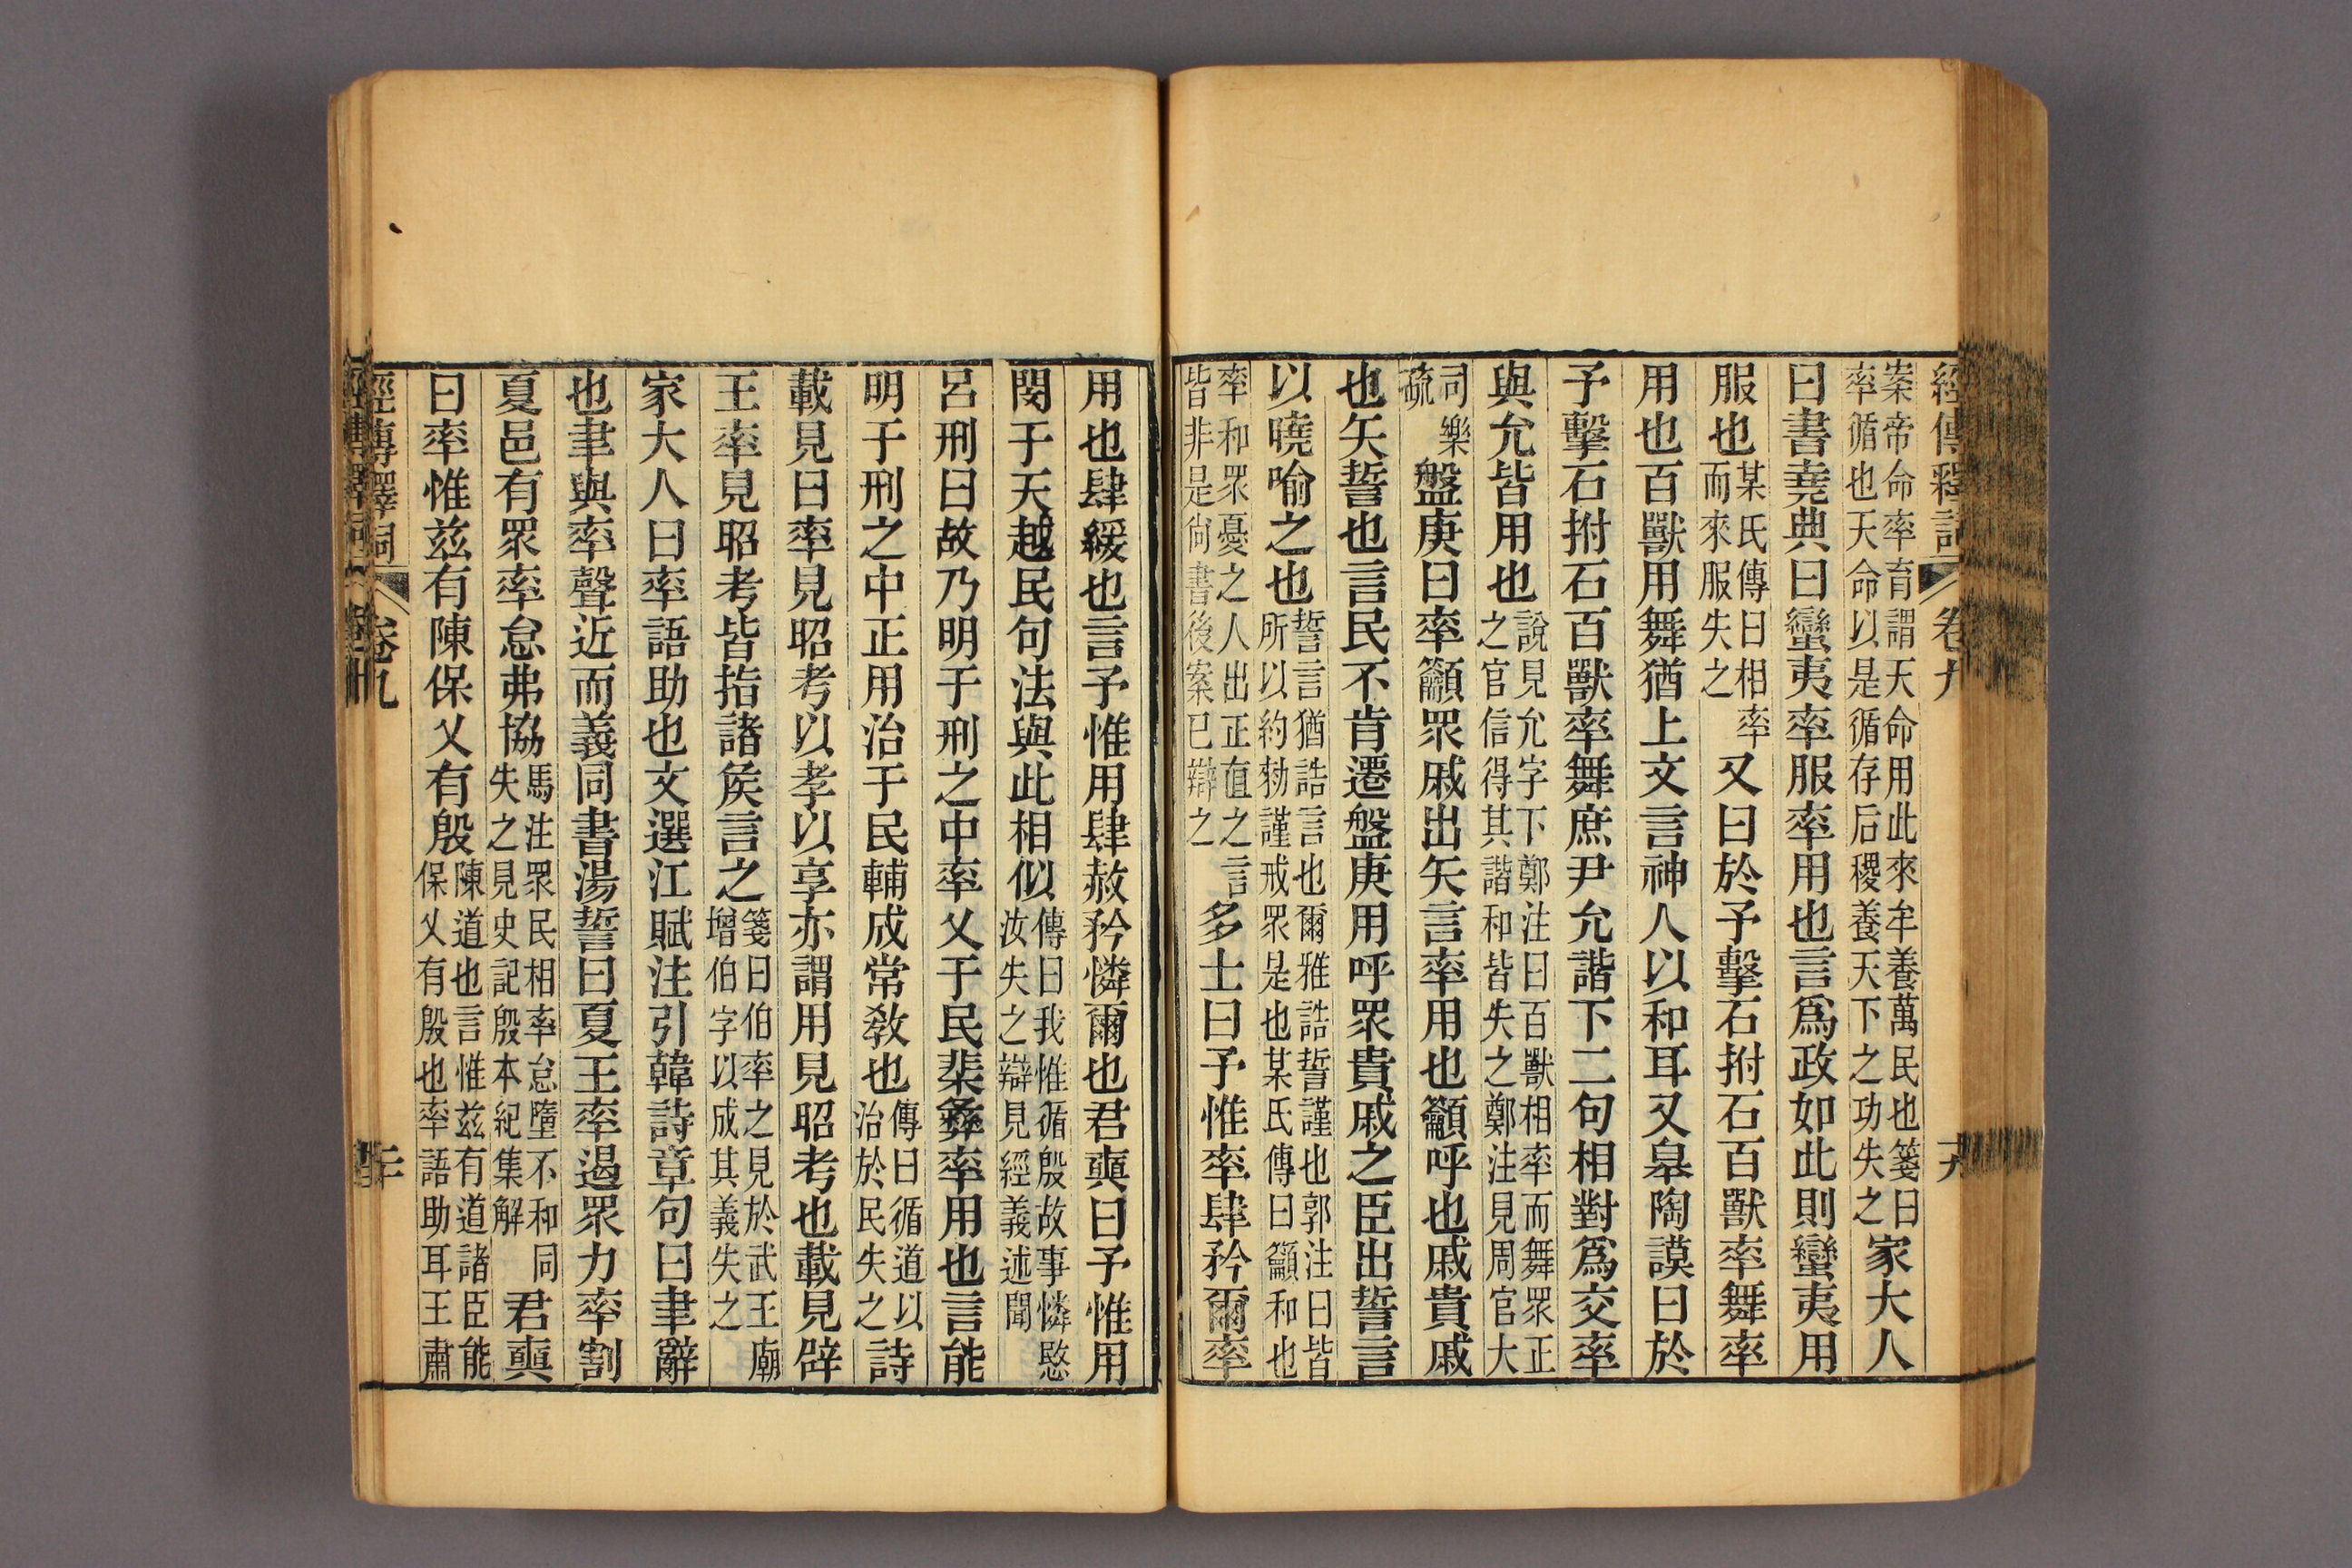 經傳釋詞 卷九 十九
案帝命率育謂天命用此來牟養萬民也箋曰率循也天命以是循存后稷養天下之功失之家大人
曰書堯典曰蠻夷率服率用也言爲政如此則蠻夷用
服也某氏傳曰相率而來服失之又曰於予擊石拊石百獸率舞率
用也百獸用舞猶上文言神人以和耳又皋陶謨曰於
予擊石拊石百獸率舞庶尹允諧下二句相對爲交率
與允皆用也說見允字下鄭注曰百獸相率而舞眾正之官信得其諧和皆失之鄭注見周官大
司樂疏盤庚曰率籲眾戚出矢言率用也籲呼也戚貴戚
也矢誓也言民不肯遷盤庚用呼眾貴戚之臣出誓言
以曉喻之也誓言猶誥言也爾雅誥誓謹也郭注曰皆所以約勑謹戒眾是也某氏傳曰籲和也
率和眾憂之人出正直之言皆非是尙書後案已辯之多士曰予惟率肆矜爾率
用也肆緩也言予惟用肆赦矜憐爾也君奭曰予惟用
閔于天越民句法與此相似傳曰我惟循殷故事憐愍汝失之辯見經義述聞
呂刑曰故乃明于刑之中率乂于民棐彝率用也言能
明于刑之中正用治于民輔成常敎也傳曰循道以治於民失之詩
載見曰率見昭考以孝以享亦謂用見昭考也載見辟
王率見昭考皆指諸矦言之箋曰伯率之見於武王廟增伯字以成其義失之
家大人曰率語助也文選江賦注引韓詩章句曰聿辭
也聿與率聲近而義同書湯誓曰夏王率遏眾力率割
夏邑有眾率怠弗協馬注眾民相率怠墮不和同失之見史記殷本紀集解君奭
曰率惟茲有陳保乂有殷陳道也言惟茲有道諸臣能保乂有殷也率語助耳王肅
經傳釋詞 卷九 二十